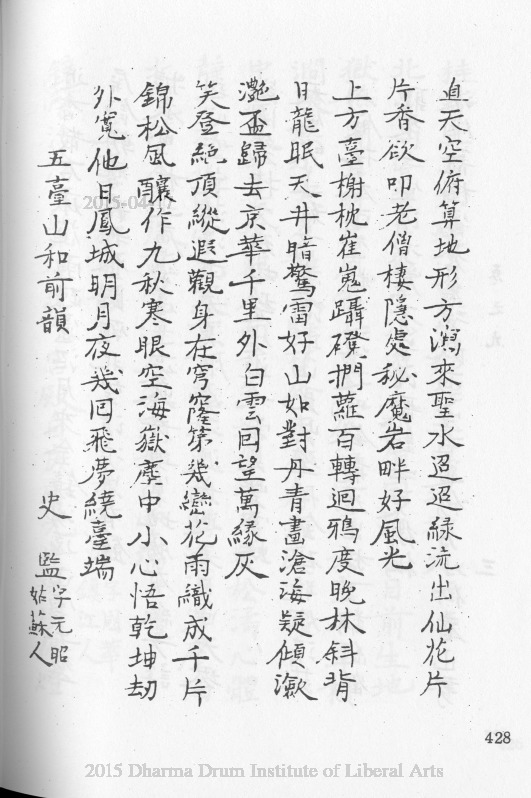 直天空俯算地形方瀉來聖水迢迢綠流出仙花片
片香欲叩老僧棲隱處秘魔岩畔好風光
上方臺榭枕崔嵬躡磴捫蘿百轉迴鴉度晚林斜背
日龍眠天井暗驚雷好山如對丹青畫滄海疑傾瀲
灧盃歸去京華千里外白雲回望萬緣灰
笑登絕頂縱遐觀身在穹窿第幾巒花雨織成千片
錦松風釀作九秋寒眼空海嶽塵中小心悟乾坤劫
外寬他日鳳城明月夜幾回飛夢繞臺端
五臺山和前韻 史 監 字元昭
姑蘇人
428
2015 Dharma Drum Institute of Liberal Arts